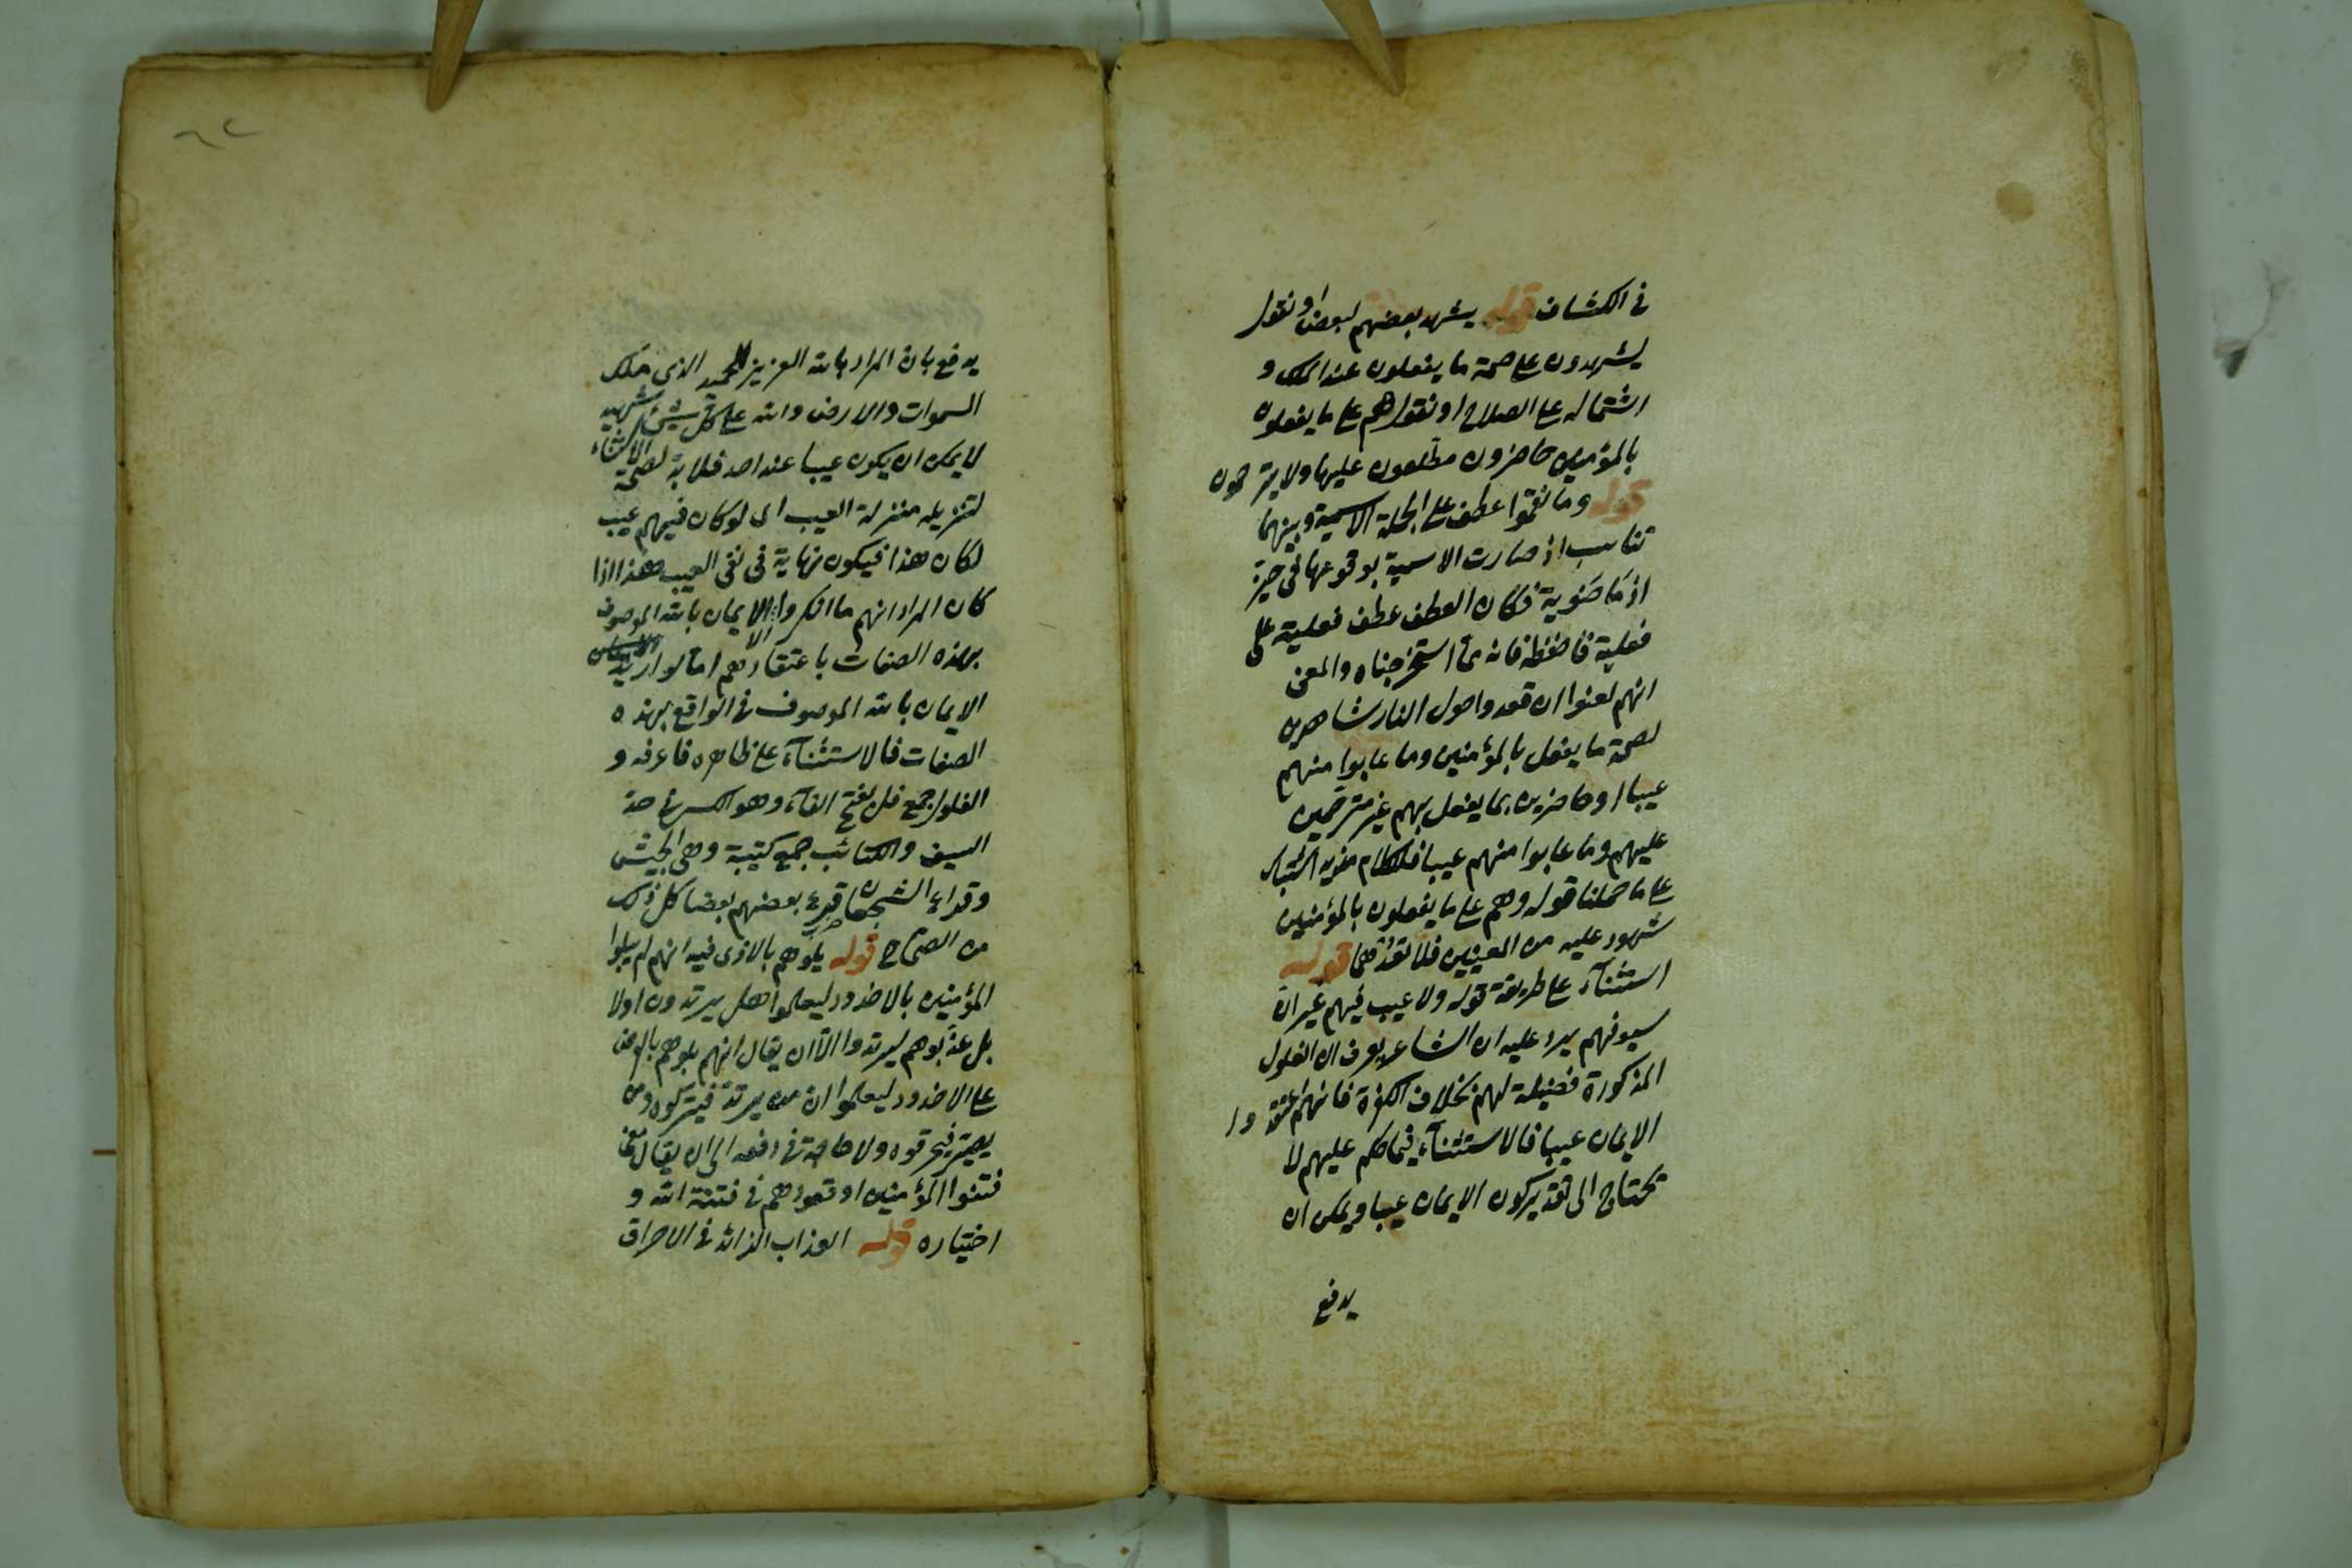 في الكشاف قوله يشهد بعضهم لبعض او نقول
يشهدون على صحة ما يفعلون عند الملك و
اشتماله على الصلاح او نقول هم على ما يفعلون
بالمؤمنين حاضرون مطلعون عليها ولا يترحمون
قوله وما نقموا عطف على الجملة الاسمية وبينهما
تناسب اذ صارت الاسمية بوقوعها في حيز
اذ ماضوية فكان العطف عطف فعلية على
فعلية فاحفظه فانه مما استخرجناه والمعنى
انهم لعنوا اذ قعدوا حول النار شاهدين
لصحة ما يفعل بالمؤمنين وما عابوا منهم
عيبا او حاضرين بما يفعل بهم غير مترحمين
عليهم وما عابوا منهم عيبا فللكلام مزيد اشتباك
على ما حملنا قوله وهم على ما يفعلون بالمؤمنين
شهود عليه من المعنيين فلا تغفل قوله
استثناء على طريقة قوله ولا عيب فيهم غير ان
سيوفهم يرد عليه ان الشاعر يعرف ان الفلول
المذكورة فضيلة لهم بخلاف الكفرة فانهم اعتقدوا
الايمان عيبا فالاستثناء فيما حكم عليهم لا
يحتاج الى تقدير كون الايمان عيبا ويمكن ان
يدفع
يدفع بان المراد بالله العزيز الحميد الذي ملك
السموات والارض والله على كل شيء شهيد
لا يمكن ان يكون عيبا عند احد فلا بد لصحة الاستثناء
لتنزيله منزلة العيب اى لو كان فيهم عيب
لكان هذا فيكون نهاية في نفي العيب وهذا اذا
كان المراد انهم ما انكروا الا الايمان بالله الموصوف
بهذه الصفات باعتقادهم اما لو اريد
الايمان بالله الموصوف في الواقع بهذه
الصفات فالاستثناء على ظاهره فاعرفه و
الفلول جمع فل بفتح الفاء وهو الكسر في حد
السيف والكتائب جمع كتيبة وهي الجيش
وقراع الشجعان قرع بعضهم بعضا كل ذلك
من الصحاح قوله بلوهم بالاذى فيه انهم لم يبلوا
المؤمنين بالاخدود ليعلموا هل يرتدون اولا
بل عذبوهم ليرتدوا الا ان يقال انهم بلوهم بالعرض
على الاخدود ليعلموا ان من يرتد فيتركوه ومن
يصير فيحرقوه ولا حاجة في دفعه الى ان يقال معنى
فتنوا المؤمنين اوقعوهم في فتنة الله و
اختباره قوله العذاب الزائد في الاحراق